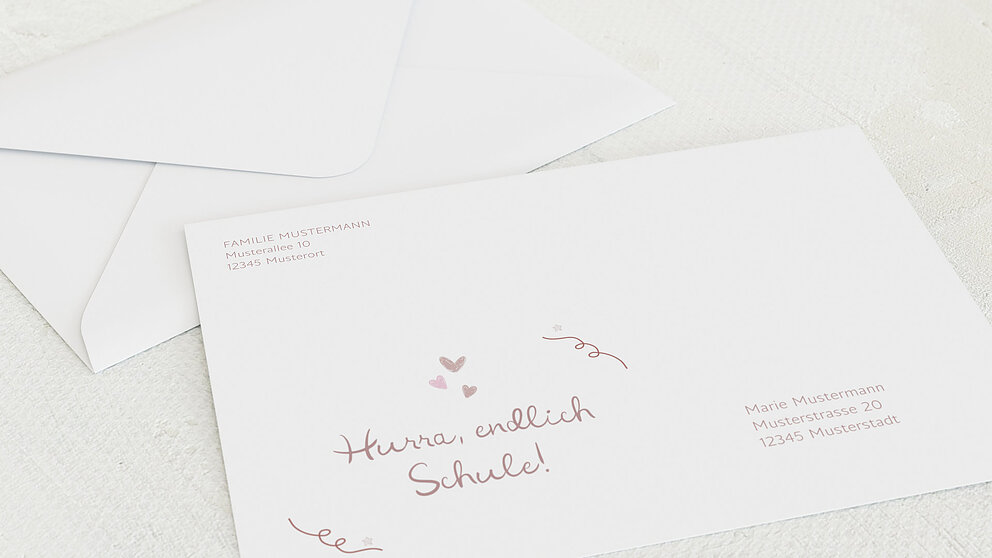 FAMILIE MUSTERMANN
Musterallee 10
12345 Musterort
Hurra, endlich
Schule!
Marie Mustermann
Musterstrasse 20
12345 Musterstadt